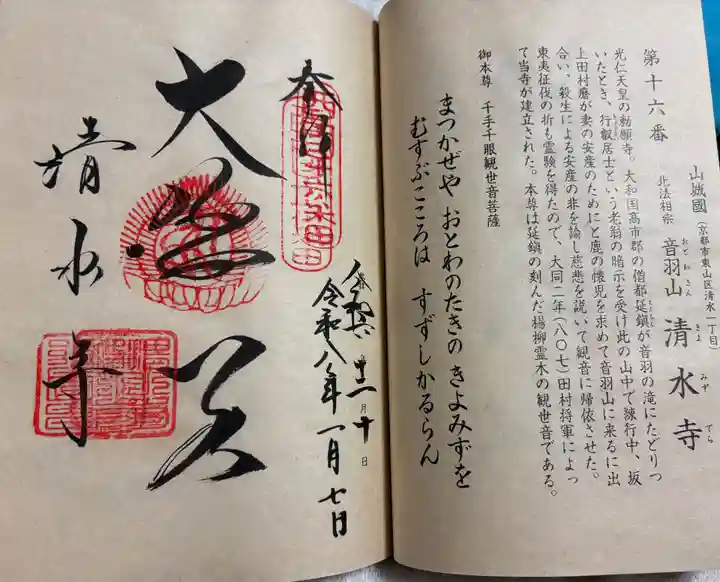 第十六番
山城國（京都市東山区清水一丁目）
北法相宗 音羽山 清水寺
おとわさん きよみずでら
光仁天皇の勅願寺。大和国高市郡の僧都延鎮が音羽の滝にたどりつ
いたとき、行叡居士という老翁の暗示を受け此の山中で諫行中、坂
上田村麿が妻の安産のためにと鹿の懐児を求めて音羽山に来るに出
合い、殺生による安産の非を諭し慈悲を説いて観音に帰依させた。
東夷征伐の折も霊験を得たので、大同二年（八〇七）田村将軍によっ
て当寺が建立された。本尊は延鎮の刻んだ楊柳霊木の観世音である。
御本尊 千手千眼観世音菩薩
まつかぜや おとわのたきの きよみずを
むすぶこころは すずしかるらん
奉拝
十二月十日
令和八年一月七日
大悲閣
清水寺